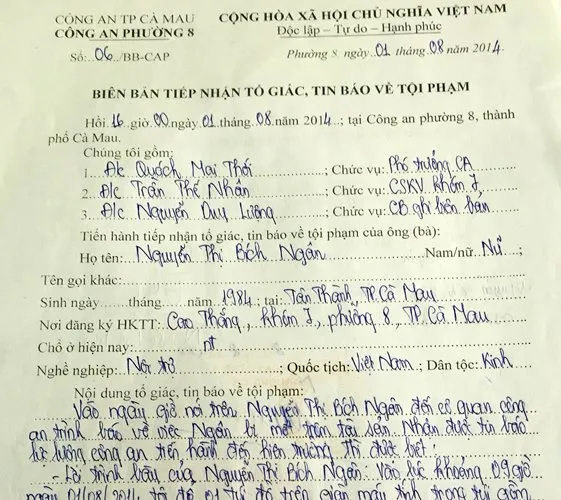 CÔNG AN TP CÀ MAU
CÔNG AN PHƯỜNG 8
Số: 06 /BB-CAP
CỘNG HÒA XÃ HỘI CHỦ NGHĨA VIỆT NAM
Độc lập – Tự do – Hạnh phúc
Phường 8, ngày 01 tháng 08 năm 2014
BIÊN BẢN TIẾP NHẬN TỐ GIÁC, TIN BÁO VỀ TỘI PHẠM
Hồi 16 giờ 00 ngày 01 tháng 08 năm 2014; tại Công an phường 8, thành
phố Cà Mau.
Chúng tôi gồm:
1. Đ/c Quách Mai Thới; Chức vụ: Phó trưởng CA
2. Đ/c Trần Thế Nhân; Chức vụ: CSKV khóm 7
3. Đ/c Nguyễn Duy Lương; Chức vụ: CB ghi biên bản
Tiến hành tiếp nhận tố giác, tin báo về tội phạm của ông (bà):
Họ tên: Nguyễn Thị Bích Ngân Nam/nữ: Nữ;
Tên gọi khác:
Sinh ngày tháng năm 1984; tại: Tân Thành, TP. Cà Mau
Nơi đăng ký HKTT: Cao Thắng, khóm 7, phường 8, TP. Cà Mau
Chỗ ở hiện nay: nt
Nghề nghiệp: Nội trợ; Quốc tịch: Việt Nam; Dân tộc: Kinh
Nội dung tố giác, tin báo về tội phạm:
Vào ngày giờ nói trên Nguyễn Thị Bích Ngân đến cơ quan công
an trình báo về việc Ngân bị mất trộm tài sản. Nhận được tin báo
lực lượng công an tiến hành đến hiện trường thì được biết:
- Lời trình bày của Nguyễn Thị Bích Ngân: Vào lúc khoảng 09 giờ
ngày 01/08/2014 tôi để 01 túi đồ trên giàn máy tính trong